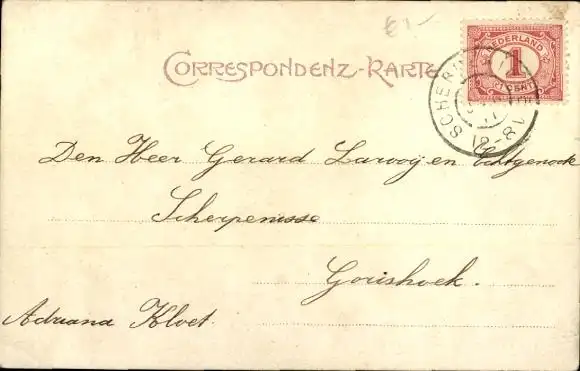 £1-
CORRESPONDENZ-KARTE
NEDERLAND
1
CENT
SCHER
12-8V
11
Den Heer Gerard Larooij en Echtgenoote
Scherpenisse
Gorishoek.
Adriana Kloet.